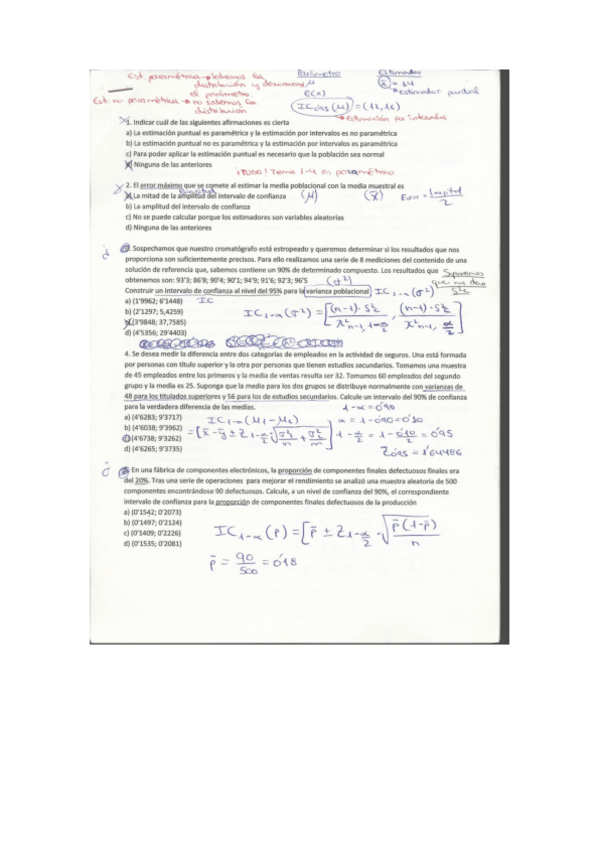 Est. paramétrica → sabemos la distribución y desconocemos el parámetro.
Est. no paramétrica → no sabemos la distribución
Parámetro
μ
E(x)
Estimador
x̄ = 14
→ estimador puntual
IC 0'95 (μ) = (12, 16)
→ Estimación por intervalos
1. Indicar cuál de las siguientes afirmaciones es cierta
a) La estimación puntual es paramétrica y la estimación por intervalos es no paramétrica
b) La estimación puntual no es paramétrica y la estimación por intervalos es paramétrica
c) Para poder aplicar la estimación puntual es necesario que la población sea normal
d) Ninguna de las anteriores
¡TODO! Tema 1-4 es paramétrico.
2. El error máximo que se comete al estimar la media poblacional con la media muestral es
a) La mitad de la amplitud del intervalo de confianza
longitud
(μ) (x̄) Error = longitud / 2
b) La amplitud del intervalo de confianza
c) No se puede calcular porque los estimadores son variables aleatorias
d) Ninguna de las anteriores
3. Sospechamos que nuestro cromatógrafo está estropeado y queremos determinar si los resultados que nos
proporciona son suficientemente precisos. Para ello realizamos una serie de 8 mediciones del contenido de una
solución de referencia que, sabemos contiene un 90% de determinado compuesto. Los resultados que
obtenemos son: 93'3; 86'8; 90'4; 90'1; 94'9; 91'6; 92'3; 96'5
(σ²)
Suponemos que nos dan S²c
Construir un intervalo de confianza al nivel del 95% para la varianza poblacional
IC 1-α (σ²)
a) (1'9962; 6'1448)
IC
b) (2'1297; 5,4259)
c) (3'9848; 37,7585)
d) (4'5356; 29'4403)
IC 1-α (σ²) = [ (n-1)·S²c / χ² n-1, 1-α/2 , (n-1)·S²c / χ² n-1, α/2 ]
4. Se desea medir la diferencia entre dos categorías de empleados en la actividad de seguros. Una está formada
por personas con título superior y la otra por personas que tienen estudios secundarios. Tomamos una muestra
de 45 empleados entre los primeros y la media de ventas resulta ser 32. Tomamos 60 empleados del segundo
grupo y la media es 25. Suponga que la media para los dos grupos se distribuye normalmente con varianzas de
48 para los titulados superiores y 56 para los de estudios secundarios. Calcule un intervalo del 90% de confianza
para la verdadera diferencia de las medias.
1-α = 0'90
a) (4'6283; 9'3717)
b) (4'6038; 9'3962)
c) (4'6738; 9'3262)
d) (4'6265; 9'3735)
IC 1-α (μ1 - μ2)
= [ x̄ - ȳ ± Z 1-α/2 · √(σ²1/n + σ²2/m) ]
α = 1 - 0'90 = 0'10
1 - α/2 = 1 - 0'10/2 = 0'95
Z 0'95 = 1'64486
5. En una fábrica de componentes electrónicos, la proporción de componentes finales defectuosos finales era
del 20%. Tras una serie de operaciones para mejorar el rendimiento se analizó una muestra aleatoria de 500
componentes encontrándose 90 defectuosos. Calcule, a un nivel de confianza del 90%, el correspondiente
intervalo de confianza para la proporción de componentes finales defectuosos de la producción
a) (0'1542; 0'2073)
b) (0'1497; 0'2124)
c) (0'1409; 0'2226)
d) (0'1535; 0'2081)
IC 1-α (p) = [ p̄ ± Z 1-α/2 · √(p̄(1-p̄)/n)
p̄ = 90/500 = 0'18